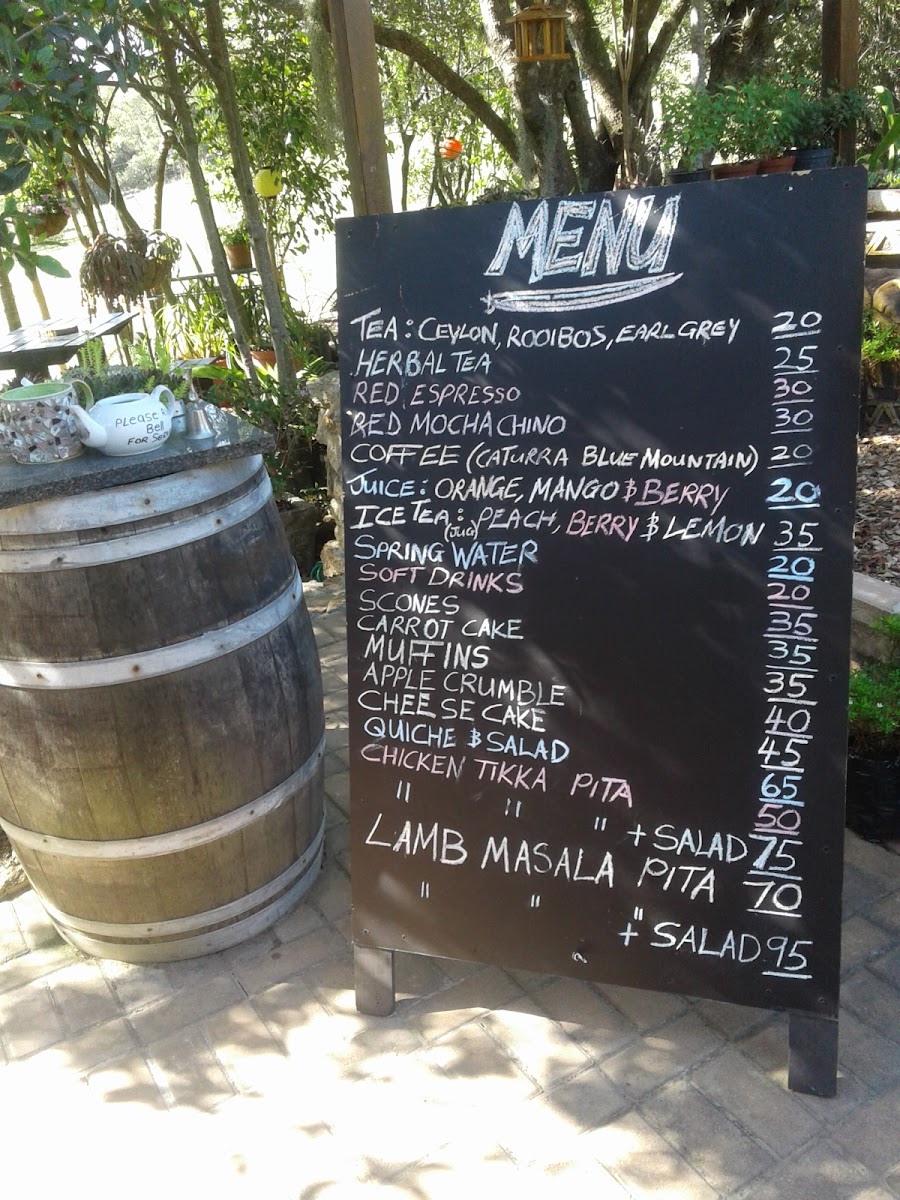 MENU
TEA: CEYLON, ROOIBOS, EARL GREY 20
HERBAL TEA 25
RED ESPRESSO 30
RED MOCHACHINO 30
COFFEE (CATURRA BLUE MOUNTAIN) 20
JUICE: ORANGE, MANGO & BERRY 20
ICE TEA: (JUG) PEACH, BERRY & LEMON 35
SPRING WATER 20
SOFT DRINKS 20
SCONES 35
CARROT CAKE 35
MUFFINS 35
APPLE CRUMBLE 40
CHEESE CAKE 45
QUICHE & SALAD 65
CHICKEN TIKKA PITA 50
" " " + SALAD 75
LAMB MASALA PITA 70
" " " + SALAD 95
PLEASE
Bell
FOR